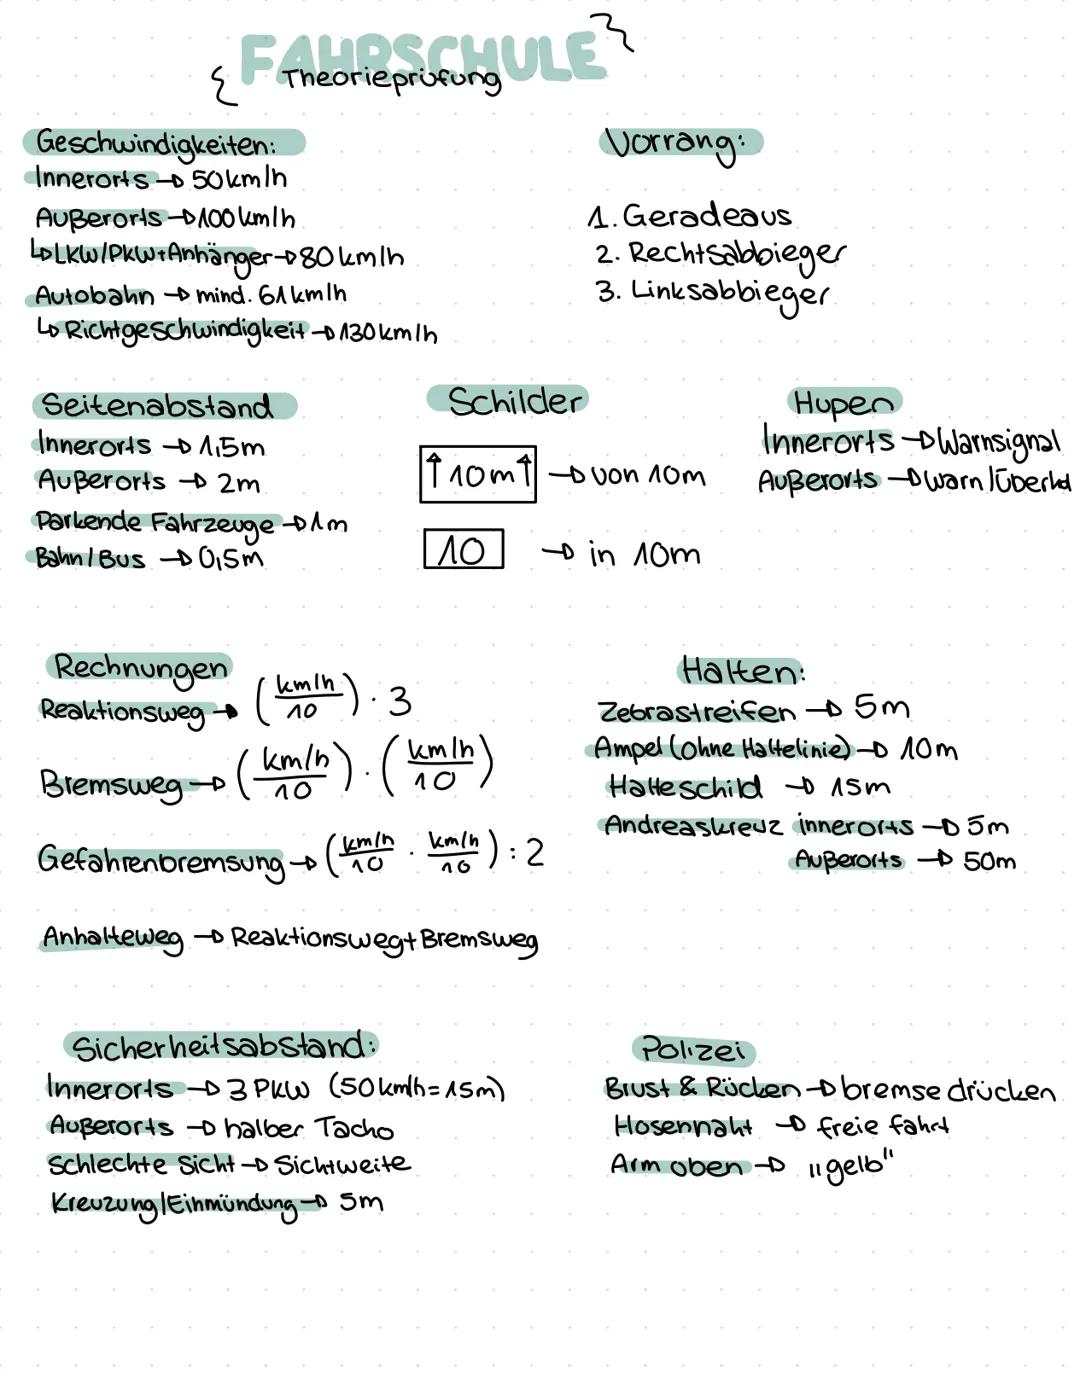 FAHRSCHULE
Theorieprüfung
Geschwindigkeiten:
Innerorts → 50km/h
Außerorts → 100km/h
↳ LKW/PKW+Anhänger → 80km/h
Autobahn → mind. 61km/h
↳ Richtgeschwindigkeit → 130km/h
Vorrang:
1. Geradeaus
2. Rechtsabbieger
3. Linksabbieger
Seitenabstand
Innerorts → 1,5m
Außerorts → 2m
Parkende Fahrzeuge → 1m
Bahn/Bus → 0,5m
Schilder
↑10m↑ → von 10m
10 → in 10m
Hupen
Innerorts → Warnsignal
Außerorts → Warn/Überhol
Rechnungen
Reaktionsweg → (km/h / 10) · 3
Bremsweg → (km/h / 10) · (km/h / 10)
Gefahrenbremsung → (km/h / 10 · km/h / 10) : 2
Anhalteweg → Reaktionsweg+Bremsweg
Halten:
Zebrastreifen → 5m
Ampel (ohne Haltelinie) → 10m
Halteschild → 15m
Andreaskreuz innerorts → 5m
Außerorts → 50m
Sicherheitsabstand:
Innerorts → 3 PKW (50km/h=15m)
Außerorts → halber Tacho
Schlechte Sicht → Sichtweite
Kreuzung/Einmündung → 5m
Polizei
Brust & Rücken → bremse drücken
Hosennaht → freie fahrt
Arm oben → "gelb"